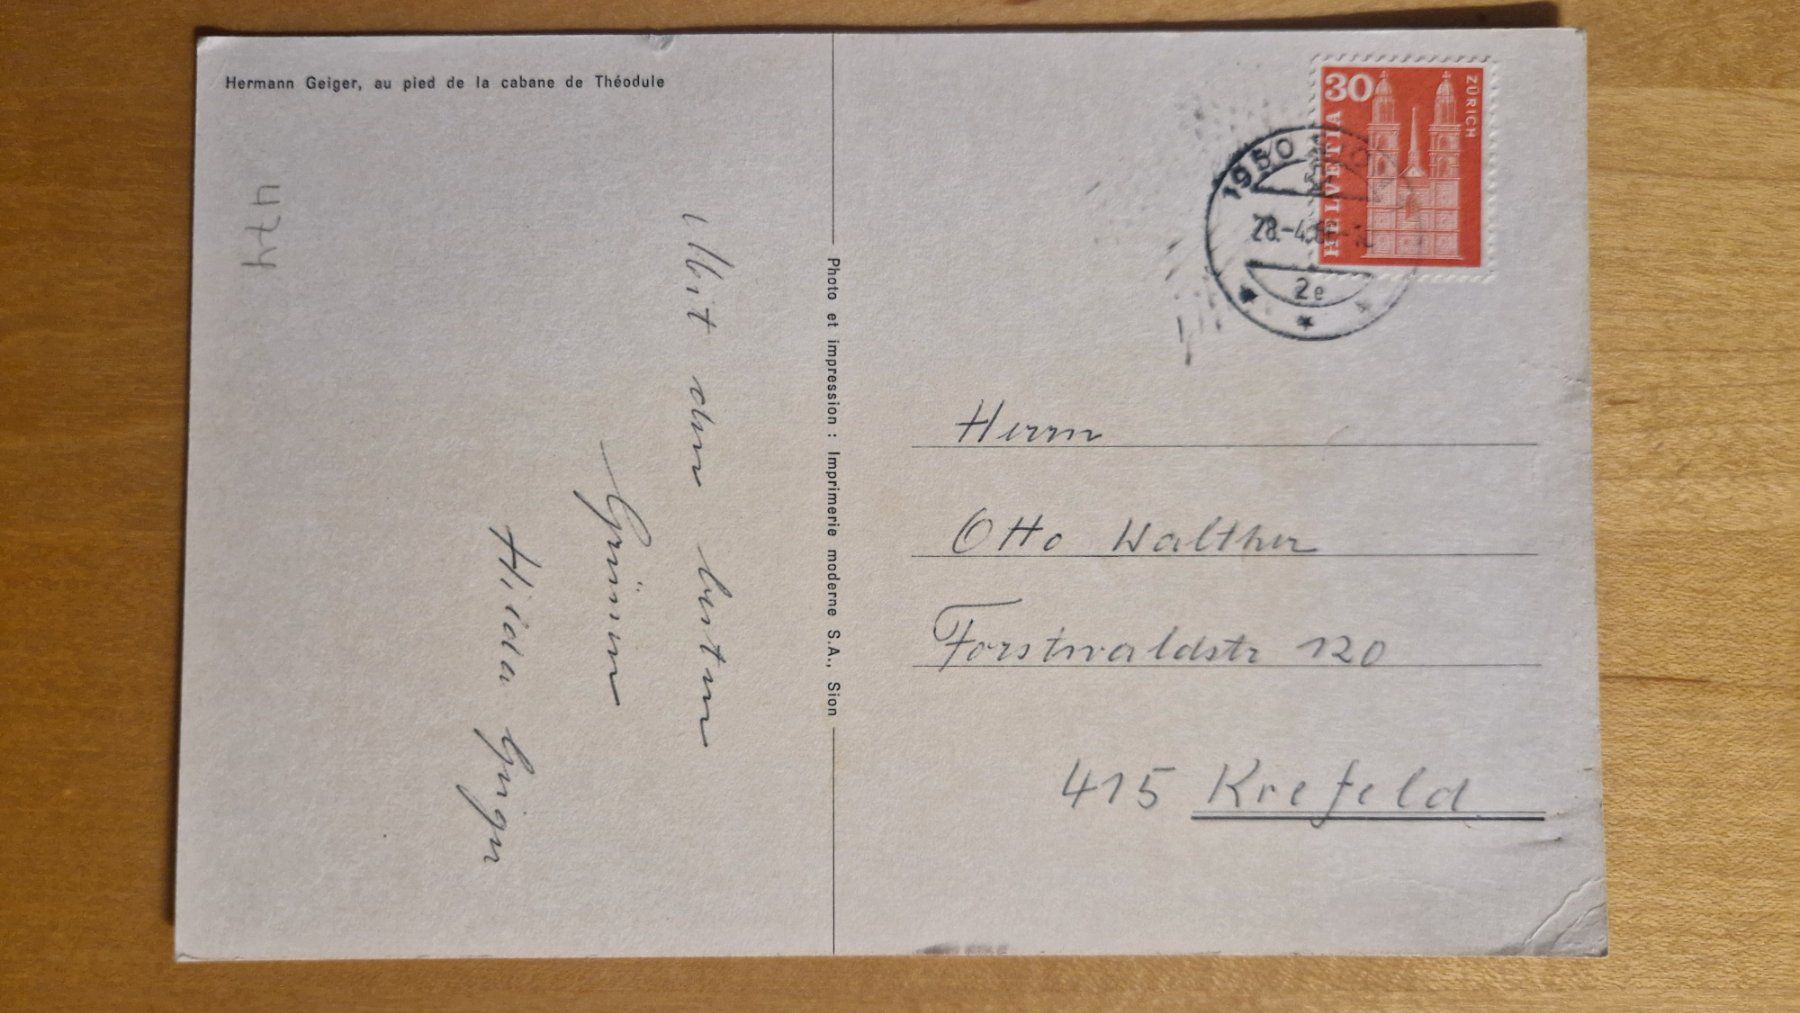 Hermann Geiger, au pied de la cabane de Théodule
Mit den besten
Grüssen
Hilda Geiger
Photo et impression : Imprimerie moderne S.A., Sion
30
HELVETIA
ZÜRICH
1950
28.-4.
2e
Herrn
Otto Walther
Forstwaldstr 120
415 Krefeld